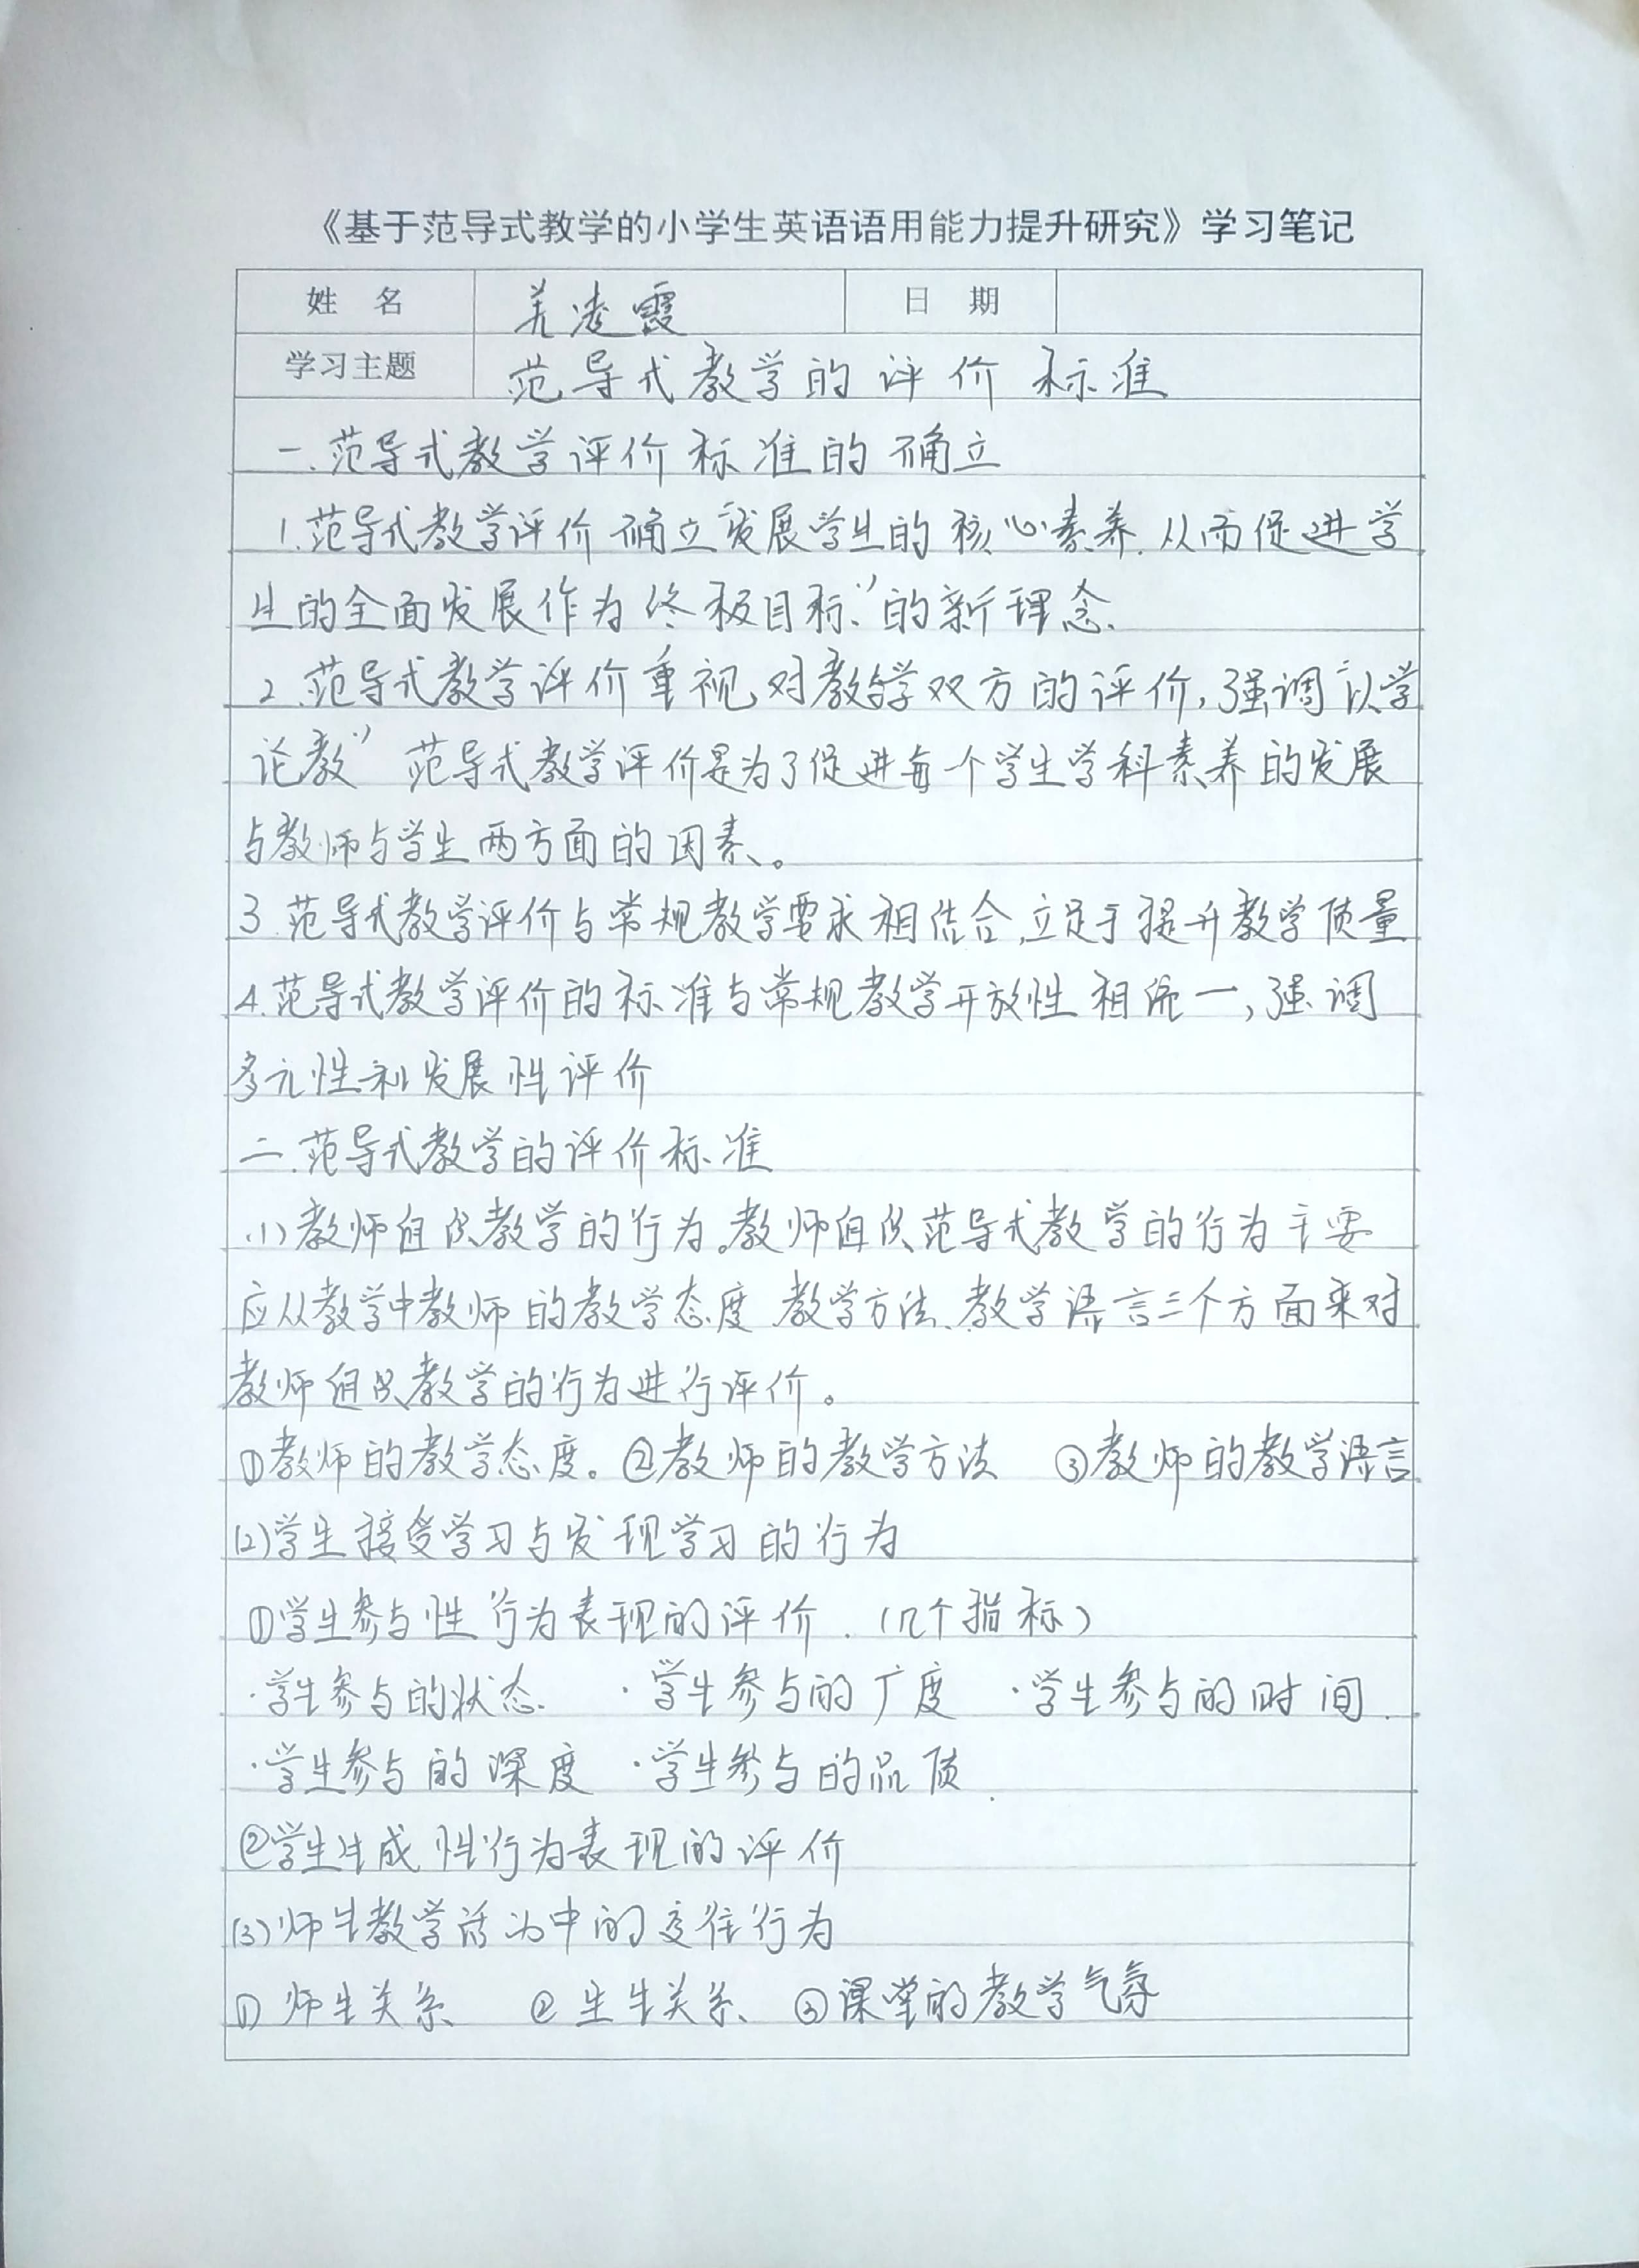 《基于范导式教学的小学生英语语用能力提升研究》学习笔记
姓 名 凌霞 日 期
学习主题 范导式教学的评价标准
一.范导式教学评价标准的确立
1.范导式教学评价确立“发展学生的核心素养.从而促进学
生的全面发展作为终极目标”的新理念.
2.范导式教学评价重视对教与学双方的评价,强调“以学
论教” 范导式教学评价是为了促进每个学生学科素养的发展
与教师与学生两方面的因素。
3.范导式教学评价与常规教学要求相结合,立足于提升教学质量
4.范导式教学评价的标准与常规教学开放性相统一,强调
多元性和发展性评价
二.范导式教学的评价标准
(1)教师组织教学的行为。教师组织范导式教学的行为主要
应从教学中教师的教学态度、教学方法、教学语言三个方面来对
教师组织教学的行为进行评价。
①教师的教学态度。②教师的教学方法 ③教师的教学语言
(2)学生接受学习与发现学习的行为
①学生参与性行为表现的评价.(几个指标)
·学生参与的状态. ·学生参与的广度 ·学生参与的时间.
·学生参与的深度 ·学生参与的品质.
②学生生成性行为表现的评价
(3)师生教学活为中的交往行为
① 师生关系 ② 生生关系 ③课堂的教学气氛